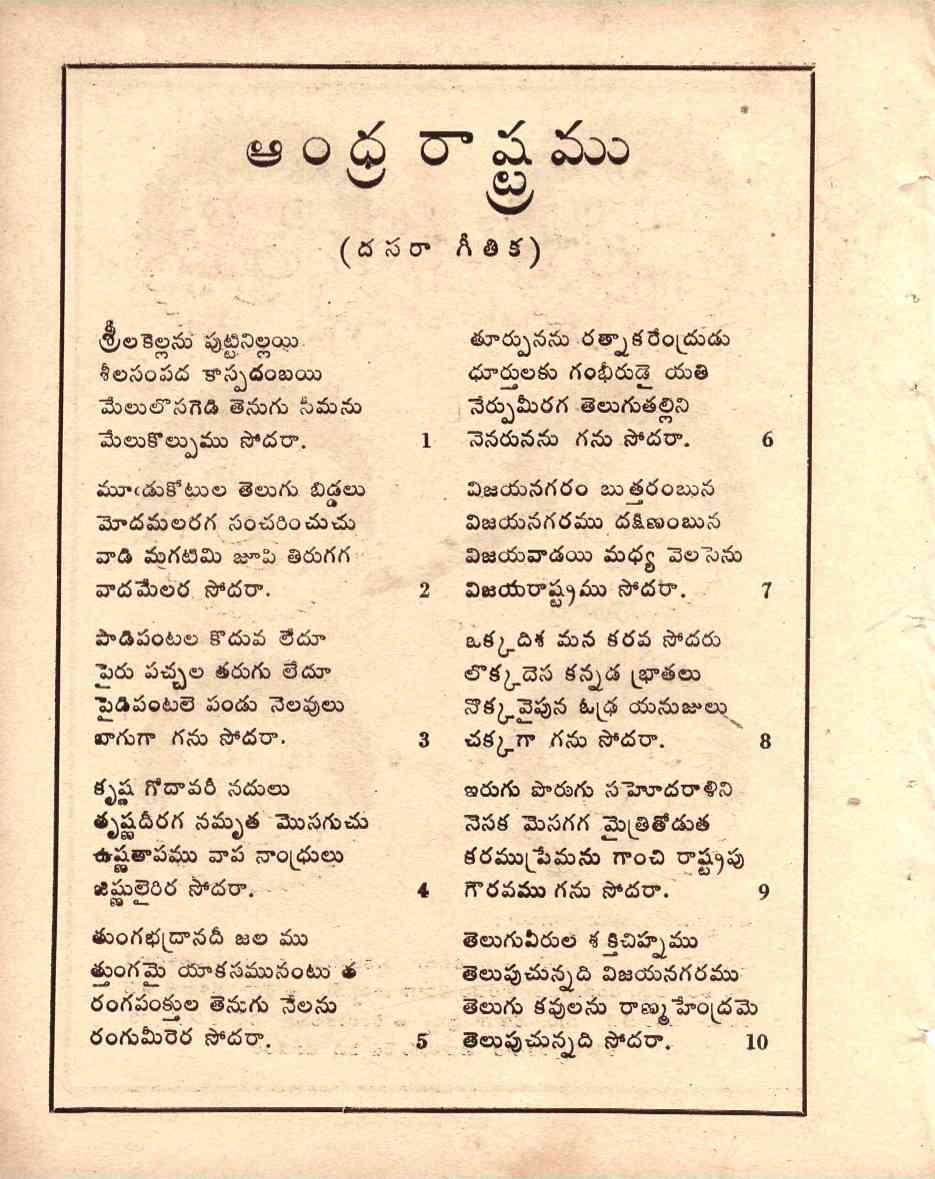 ఆంధ్ర రాష్ట్రము
(దసరా గీతిక)
శ్రీలకెల్లను పుట్టినిల్లయి
శీలసంపద కాస్పదంబయి
మేలులొసగెడి తెనుగు సీమను
మేలుకొల్పుము సోదరా. 1
మూఁడుకోటుల తెలుగు బిడ్డలు
మోదమలరగ సంచరించుచు
వాడి మగటిమి జూపి తిరుగగ
వాదమేలర సోదరా. 2
పాడిపంటల కొదువ లేదూ
పైరు పచ్చల తరుగు లేదూ
పైడిపంటలె పండు నెలవులు
బాగుగా గను సోదరా. 3
కృష్ణ గోదావరీ నదులు
తృష్ణదీరగ నమృత మొసగుచు
ఉష్ణతాపము వాప నాంధ్రులు
జిష్ణులైరిర సోదరా. 4
తుంగభద్రానదీ జల ము
త్తుంగమై యాకసమునంటు త
రంగపంక్తుల తెనుగు నేలను
రంగుమీరెర సోదరా. 5
తూర్పునను రత్నాకరేంద్రుడు
ధూర్తులకు గంభీరుడై యతి
నేర్పుమీరగ తెలుగుతల్లిని
నెనరునను గను సోదరా. 6
విజయనగరం బుత్తరంబున
విజయనగరము దక్షిణంబున
విజయవాడయి మధ్య వెలసెను
విజయరాష్ట్రము సోదరా. 7
ఒక్కదిశ మన కరవ సోదరు
లొక్కదెస కన్నడ భ్రాతలు
నొక్కవైపున ఓఢ్ర యనుజులు
చక్కగా గను సోదరా. 8
ఇరుగు పొరుగు సహోదరాళిని
నెసక మెసగగ మైత్రితోడుత
కరముప్రేమను గాంచి రాష్ట్రపు
గౌరవము గను సోదరా. 9
తెలుగువీరుల శక్తిచిహ్నము
తెలుపుచున్నది విజయనగరము
తెలుగు కవులను రాణ్మహేంద్రమె
తెలుపుచున్నది సోదరా. 10